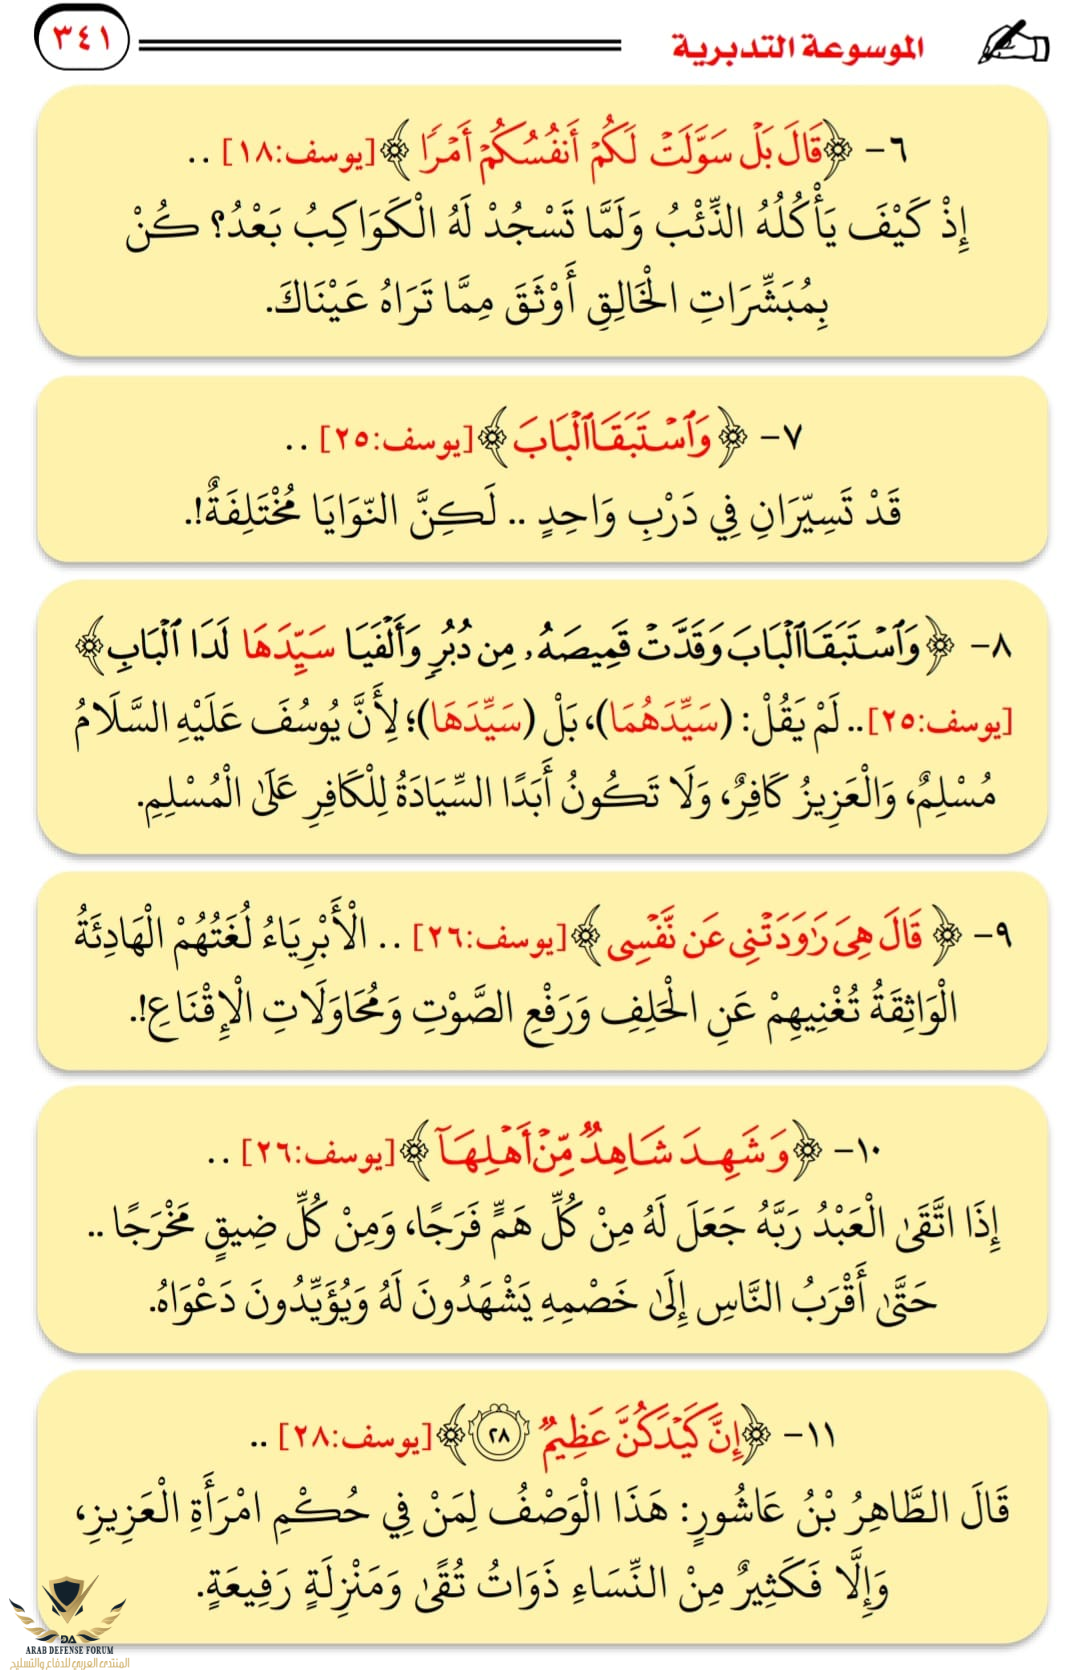 الموسوعة التدبرية
٣٤١
٦- ﴿قَالَ بَلْ سَوَّلَتْ لَكُمْ أَنفُسُكُمْ أَمْرًا﴾ [يوسف:١٨] ..
إِذْ كَيْفَ يَأْكُلُهُ الذِّئْبُ وَلَمَّا تَسْجُدْ لَهُ الْكَوَاكِبُ بَعْدُ؟ كُنْ
بِمُبَشِّرَاتِ الْخَالِقِ أَوْثَقَ مِمَّا تَرَاهُ عَيْنَاكَ.
٧- ﴿وَٱسْتَبَقَا ٱلْبَابَ﴾ [يوسف:٢٥] ..
قَدْ تَسِيّرَانِ فِي دَرْبٍ وَاحِدٍ .. لَكِنَّ النّوَايَا مُخْتَلِفَةٌ!.
٨- ﴿وَٱسْتَبَقَا ٱلْبَابَ وَقَدَّتْ قَمِيصَهُۥ مِن دُبُرٍ وَأَلْفَيَا سَيِّدَهَا لَدَا ٱلْبَابِ﴾
[يوسف:٢٥].. لَمْ يَقُلْ: (سَيِّدَهُمَا)، بَلْ (سَيِّدَهَا)؛ لِأَنَّ يُوسُفَ عَلَيْهِ السَّلَامُ
مُسْلِمٌ، وَالْعَزِيزُ كَافِرٌ، وَلَا تَكُونُ أَبَدًا السِّيَادَةُ لِلْكَافِرِ عَلَى الْمُسْلِمِ.
٩- ﴿قَالَ هِىَ رَٰوَدَتْنِى عَن نَّفْسِى﴾ [يوسف:٢٦] .. الْأَبْرِيَاءُ لُغَتُهُمْ الْهَادِئَةُ
الْوَاثِقَةُ تُغْنِيهِمْ عَنِ الْحَلِفِ وَرَفْعِ الصَّوْتِ وَمُحَاوَلَاتِ الْإِقْنَاعِ!.
١٠- ﴿وَشَهِدَ شَاهِدٌ مِّنْ أَهْلِهَآ﴾ [يوسف:٢٦] ..
إِذَا اتَّقَىٰ الْعَبْدُ رَبَّهُ جَعَلَ لَهُ مِنْ كُلِّ هَمٍّ فَرَجًا، وَمِنْ كُلِّ ضِيقٍ مَخْرَجًا ..
حَتَّىٰ أَقْرَبُ النَّاسِ إِلَىٰ خَصْمِهِ يَشْهَدُونَ لَهُ وَيُؤَيِّدُونَ دَعْوَاهُ.
١١- ﴿إِنَّ كَيْدَكُنَّ عَظِيمٌ ٢٨﴾ [يوسف:٢٨] ..
قَالَ الطَّاهِرُ بْنُ عَاشُورٍ: هَذَا الْوَصْفُ لِمَنْ فِي حُكْمِ امْرَأَةِ الْعَزِيزِ،
وَإِلَّا فَكَثِيرٌ مِنْ النِّسَاءِ ذَوَاتُ تُقًى وَمَنْزِلَةٍ رَفِيعَةٍ.
DA
ARAB DEFENSE FORUM
المنتدى العربي للدفاع والتسليح